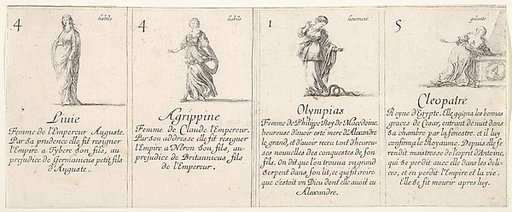 4 habile
Liuie
Femme de l'Empereur Auguste.
Par sa prudence elle fit resigner
l'Empire a Tybere son fils, au
prejudice de Germanicus petit fils
d'Auguste.
4 habile
Agrippine
Femme de Claude l'Empereur.
Par son addresse elle fit resigner
l'Empire a Neron son fils, au
prejudice de Britannicus fils
de l'Empereur.
1 heureuse
Olympias
Femme de Philippe Roy de Macedoine,
heureuse d'auoir esté mere d'Alexandre
le grand, et d'auoir receu tant d'heureu-
ses nouuelles des conquestes de son
fils. On dit que l'on trouua un grand
serpent dans son lit, ce qui fit croire
que c'estoit un Dieu dont elle auoit eu
Alexandre.
5 galante
Cleopatre
Royne d'Egypte. Elle gaigna les bonnes
graces de Cesar, entrant de nuit dans
sa chambre par la fenestre. et il luy
confirma le Royaume. Depuis elle se
rendit maistresse de l'esprit d'Antoine,
qui se perdit auec elle dans les deli-
ces, et en perdit l'Empire et la vie.
Elle se fit mourir apres luy.